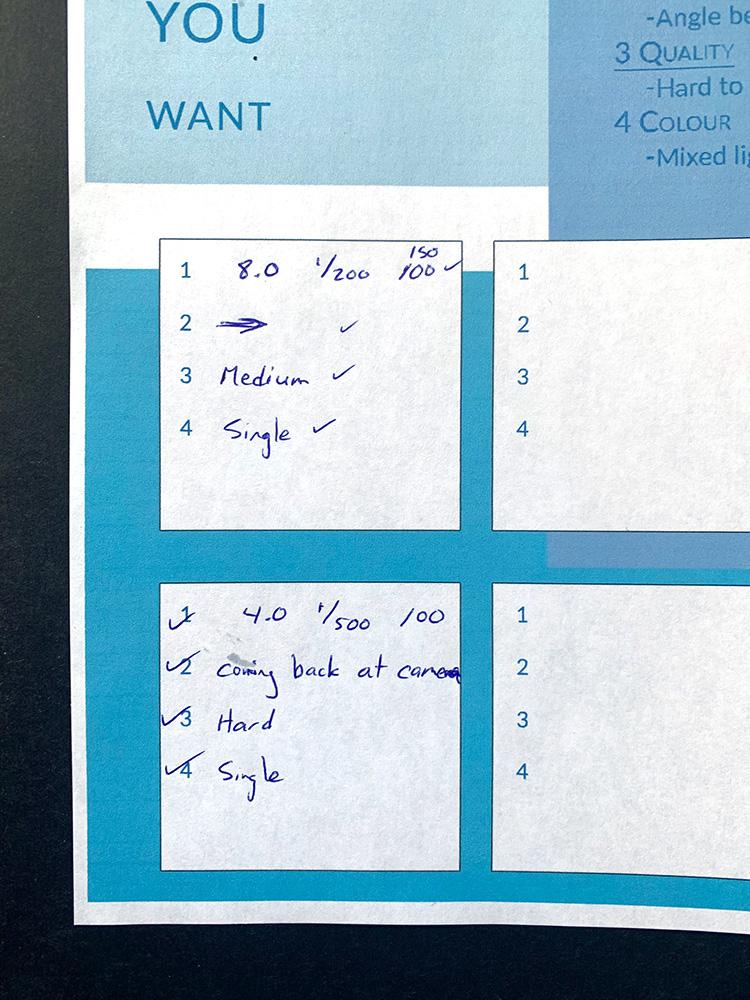 YOU
WANT
-Angle be
3 QUALITY
-Hard to
4 COLOUR
-Mixed lig
1 8.0 1/200 ISO 100 ✓
2 → ✓
3 Medium ✓
4 Single ✓
1
2
3
4
✓ 1 4.0 1/500 100
✓ 2 coming back at camera
✓ 3 Hard
✓ 4 Single
1
2
3
4